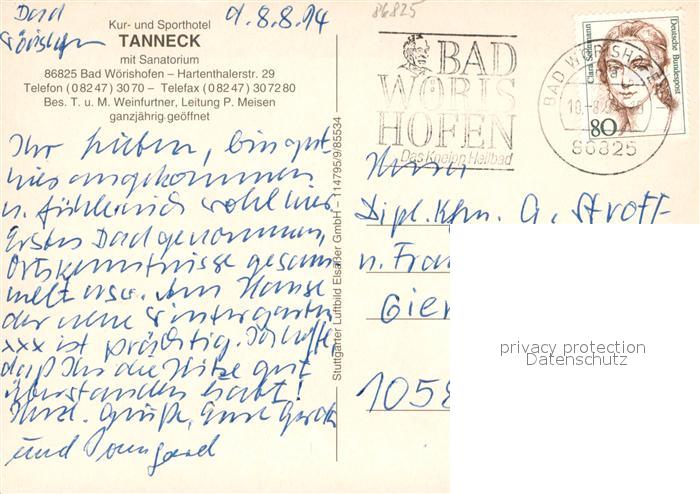 Bad
Wörishofen
d. 8.8.94
86825
Kur- und Sporthotel
TANNECK
mit Sanatorium
86825 Bad Wörishofen – Hartenthalerstr. 29
Telefon (0 82 47) 30 70 – Telefax (0 82 47) 30 72 80
Bes. T. u. M. Weinfurtner, Leitung P. Meisen
ganzjährig geöffnet
BAD
WÖRIS
HOFEN
Das Kneipp Heilbad
BAD WÖRISHOFEN
86825
Clara Schumann
Deutsche Bundespost
80
Ihr Lieben, bin gut
hier angekommen
u. fühle mich wohl hier.
Erstes Bad genommen,
Ortskenntnisse gesam
melt usw. Am Hause
der neue Wintergarten
xxx ist prächtig. Ich hoffe
daß Ihr die Hitze gut
überstanden habt!
Herzl. Grüße, Eure Gerda
und Irmgard
Stuttgarter Luftbild Elsäßer GmbH – 114795/9/85534
Herrn
Dipl. Kfm. G. Stroff-
u. Frau
Gier
1058
privacy protection
Datenschutz